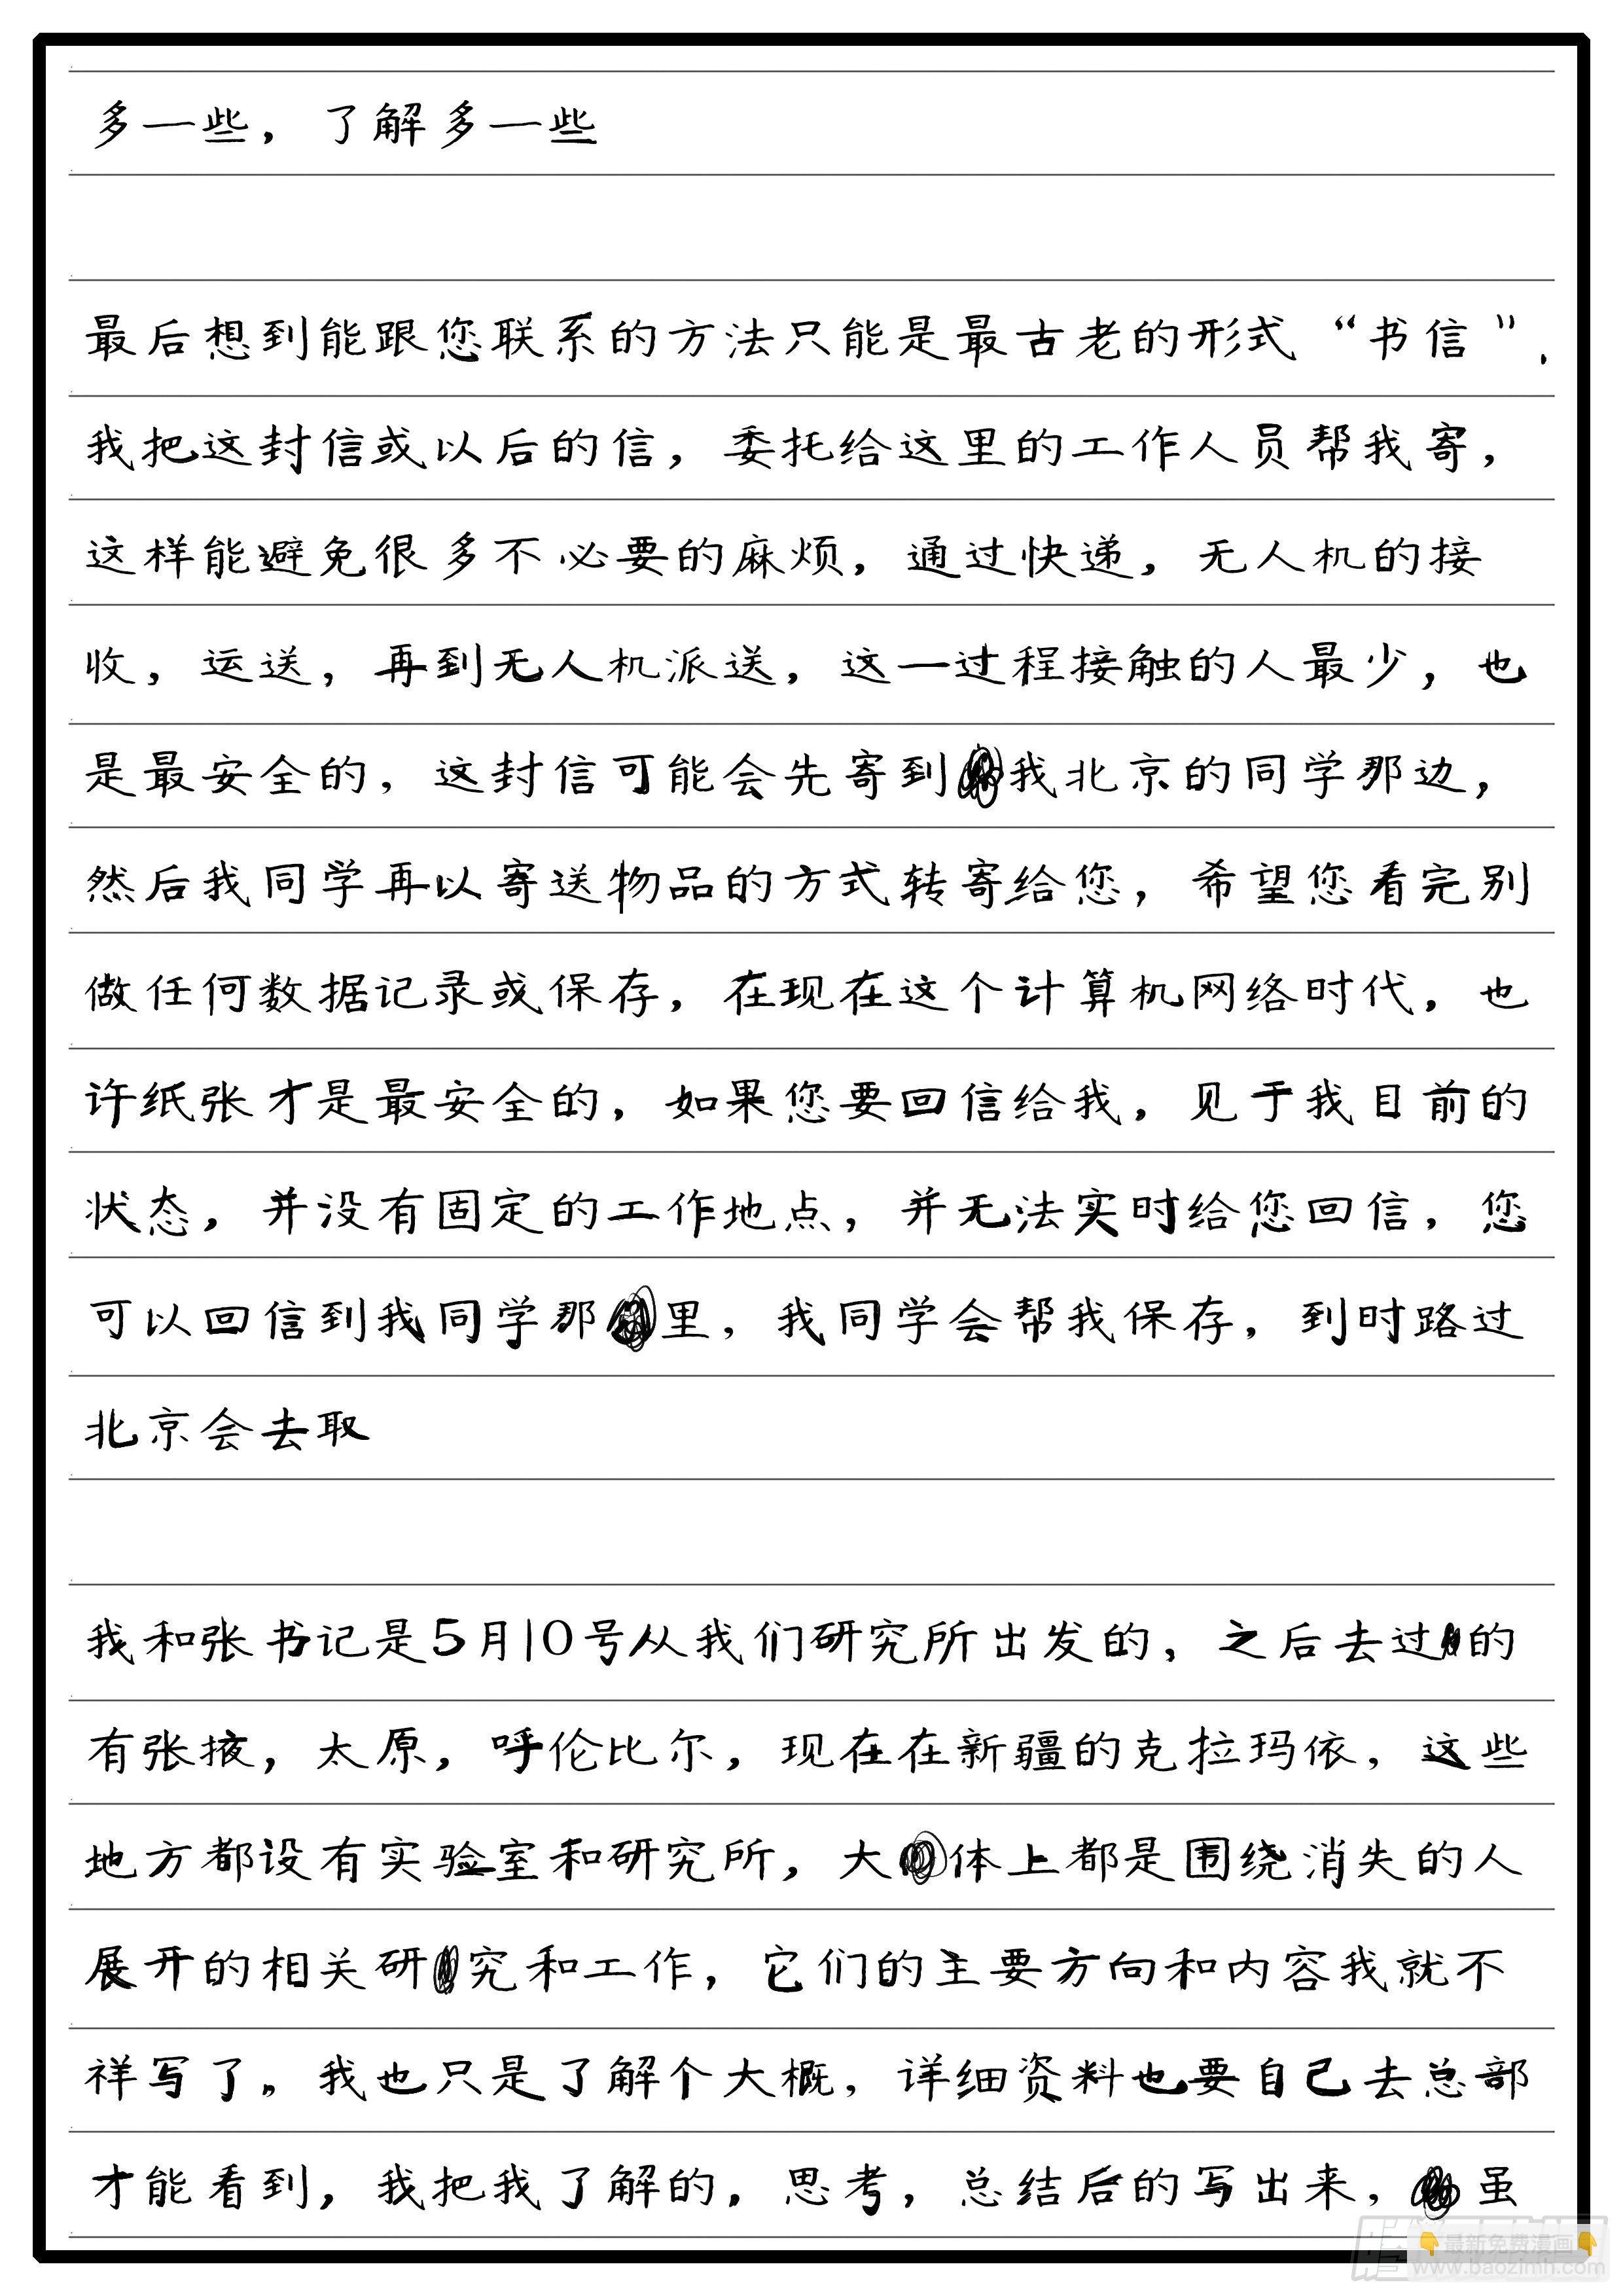 多一些，了解多一些
最后想到能跟您联系的方法只能是最古老的形式“书信”.
我把这封信或以后的信，委托给这里的工作人员帮我寄，
这样能避免很多不必要的麻烦，通过快递，无人机的接
收，运送，再到无人机派送，这一过程接触的人最少，也
是最安全的，这封信可能会先寄到我北京的同学那边，
然后我同学再以寄送物品的方式转寄给您，希望您看完别
做任何数据记录或保存，在现在这个计算机网络时代，也
许纸张才是最安全的，如果您要回信给我，见于我目前的
状态，并没有固定的工作地点，并无法实时给您回信，您
可以回信到我同学那里，我同学会帮我保存，到时路过
北京会去取
我和张书记是5月10号从我们研究所出发的，之后去过的
有张掖，太原，呼伦比尔，现在在新疆的克拉玛依，这些
地方都设有实验室和研究所，大体上都是围绕消失的人
展开的相关研究和工作，它们的主要方向和内容我就不
祥写了，我也只是了解个大概，详细资料也要自己去总部
才能看到，我把我了解的，思考，总结后的写出来，虽
👇最新免费漫画👇
www.baozimh.com